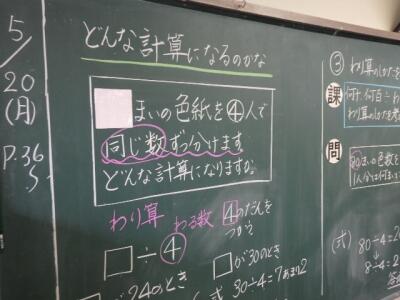 5/20
(月)
P.36
どんな計算になるのかな
□まいの色紙を④人で
同じ数ずつ分けます。
どんな計算になりますか。
わり算 わる数 4のだんを
つかう
□÷④
□が24のとき
□が30のとき
式 30÷4=7あまり2
③
課
問
80まいの色紙を
1人分は何まいで
(式)
80÷4=20
8÷4=2